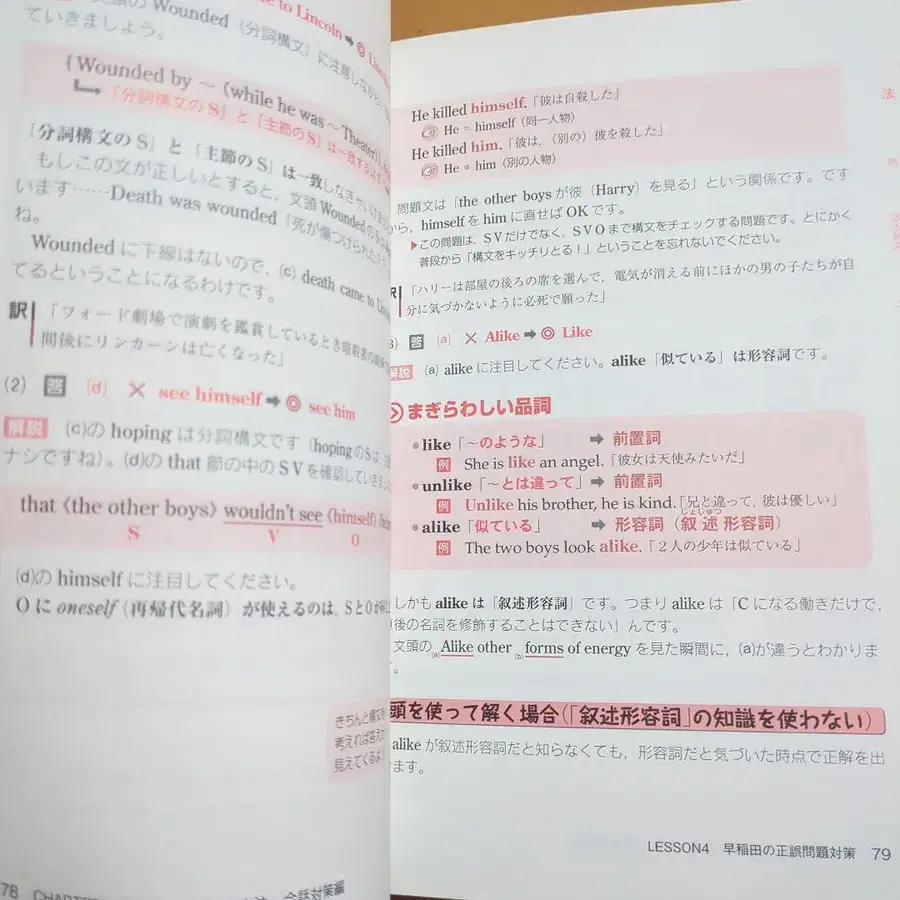 Wounded（分詞構文）に注意しながら
ていきましょう。
{Wounded by ～ (while he was ～ Theater)},
「分詞構文のS」と「主節のS」は一致
「分詞構文のS」と「主節のS」は一致しなきゃいけま
もしこの文が正しいとすると，文頭Woundedの
います……Death was wounded「死が傷つけられた
ね。
Woundedに下線はないので，(c) death came to
てるということになるわけです。
訳 「フォード劇場で演劇を鑑賞しているとき暗殺者の
間後にリンカーンは亡くなった」
(2) 答 (d) × see himself ➡ ◎ see him
解説 (c)の hoping は分詞構文です（hopingのSは，
ナシですね）。(d)の that 節の中のSVを確認していきま
that〈the other boys〉wouldn't see〈himself〉
S V O
(d)の himself に注目してください。
Oに oneself（再帰代名詞）が使えるのは，SとOが
きちんと構文を
考えれば答え
見えてくるよ
78
He killed himself.「彼は自殺した」
He = himself（同一人物）
He killed him.「彼は，（別の）彼を殺した」
He ≠ him（別の人物）
問題文は「the other boysが彼（Harry）を見る」という関係です。です
から，himselfをhimに直せばOKです。
▶この問題は，SVだけでなく，SVOまで構文をチェックする問題です。とにかく
普段から「構文をキッチリとる！」ということを忘れないでください。
訳「ハリーは部屋の後ろの席を選んで，電気が消える前にほかの男の子たちが自
分に気づかないように必死で願った」
答 (a) × Alike ➡ ◎ Like
解説 (a) alikeに注目してください。alike「似ている」は形容詞です。
まぎらわしい品詞
●like「～のような」 ➡ 前置詞
例 She is like an angel.「彼女は天使みたいだ」
●unlike「～とは違って」 ➡ 前置詞
例 Unlike his brother, he is kind.「兄と違って，彼は優しい」
●alike「似ている」 ➡ 形容詞（叙述形容詞）
じょじゅつ
例 The two boys look alike.「2人の少年は似ている」
しかもalikeは「叙述形容詞」です。つまりalikeは「Cになる働きだけで，
後の名詞を修飾することはできない」んです。
文頭の(a)Alike other (b)forms of energyを見た瞬間に，(a)が違うとわかりま
す。
頭を使って解く場合（「叙述形容詞」の知識を使わない）
alikeが叙述形容詞だと知らなくても，形容詞だと気づいた時点で正解を出
けます。
LESSON4 早稲田の正誤問題対策 79
法